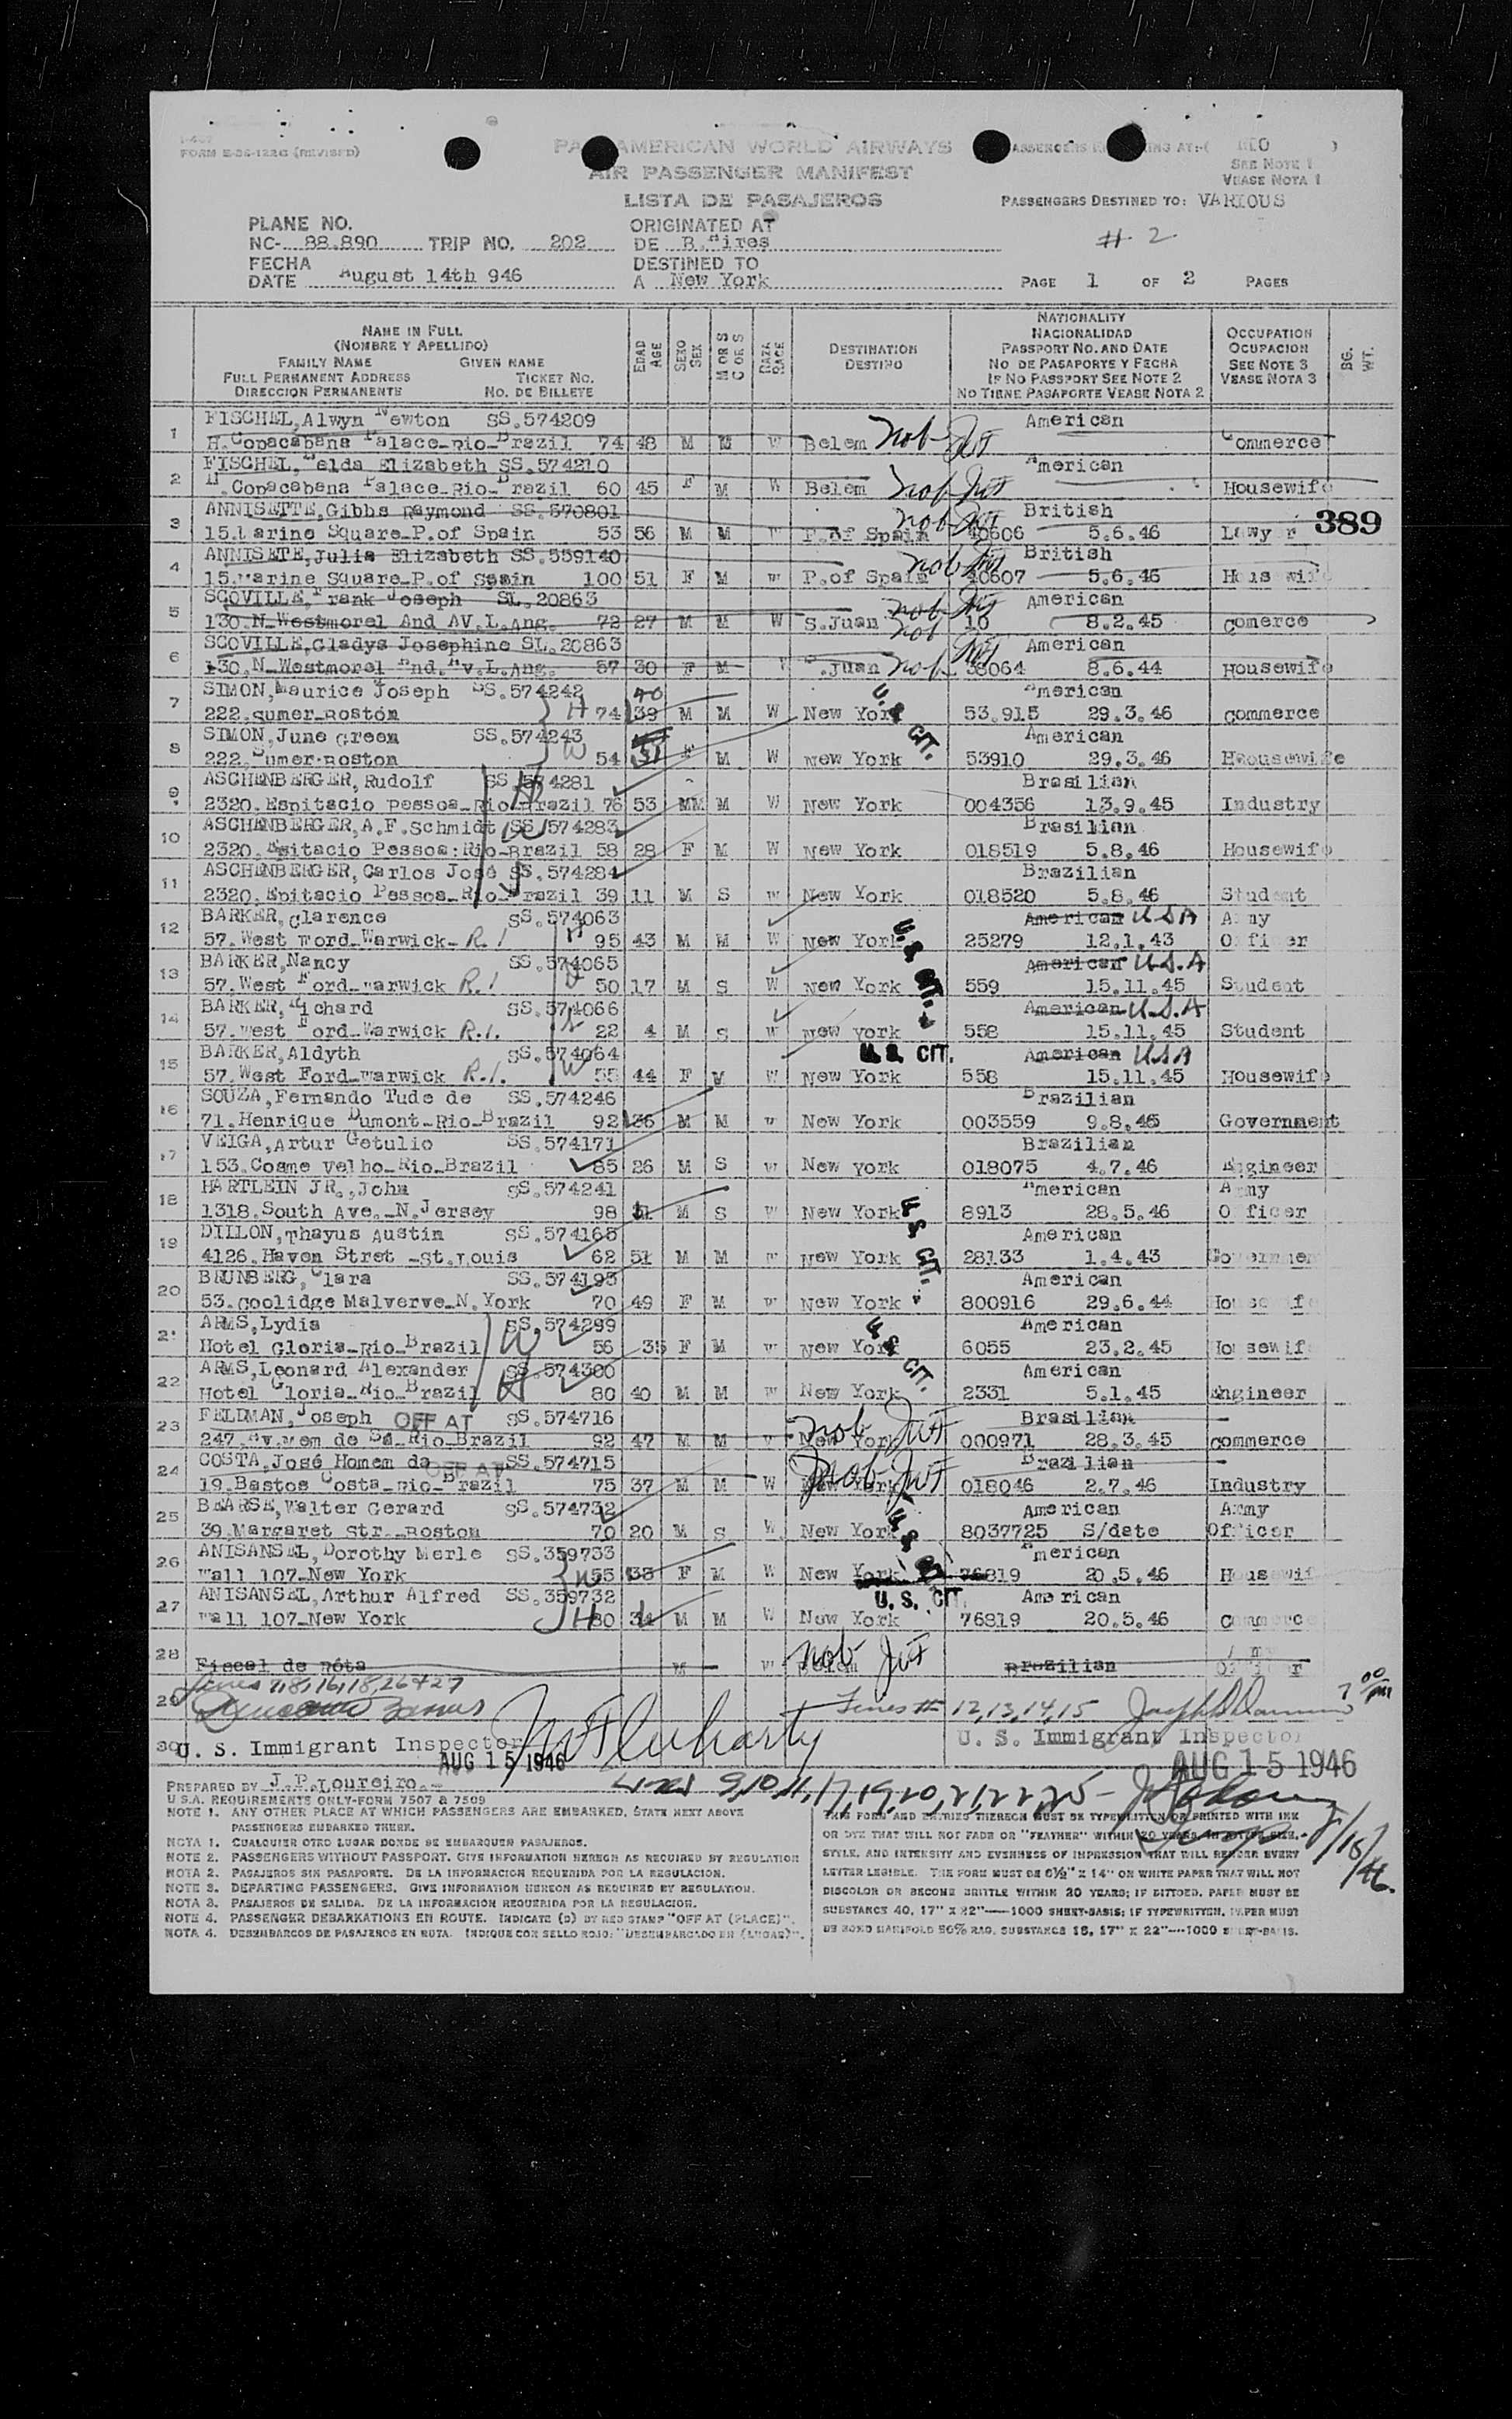 I-407
FORM E-26-122G (REVISED)
PAN AMERICAN WORLD AIRWAYS
AIR PASSENGER MANIFEST
LISTA DE PASAJEROS
SEE NOTE 1
VEASE NOTA 1
PASSENGERS DESTINED TO: VARIOUS
PLANE NO.
NC- 88.890 TRIP NO. 202
ORIGINATED AT
DE B.Aires
# 2
FECHA
DATE August 14th 946
DESTINED TO
A New York
PAGE 1 OF 2 PAGES
NAME IN FULL
(NOMBRE Y APELLIDO)
FAMILY NAME GIVEN NAME
FULL PERMANENT ADDRESS TICKET NO.
DIRECCION PERMANENTE NO. DE BILLETE
EDAD AGE
SEXO SEX
M OR S
C OR S
RAZA RACE
DESTINATION
DESTINO
NATIONALITY
NACIONALIDAD
PASSPORT NO. AND DATE
NO DE PASAPORTE Y FECHA
IF NO PASSPORT SEE NOTE 2
NO TIENE PASAPORTE VEASE NOTA 2
OCCUPATION
OCUPACION
SEE NOTE 3
VEASE NOTA 3
BG. WT.
1 FISCHEL, Alwyn Newton SS.574209 American
H.Copacabana Palace-Rio-Brazil 74 48 M M W Belem nob Commerce
2 FISCHEL, Zelda Elizabeth SS.574210 American
H.Copacabana Palace-Rio-Brazil 60 45 F M W Belem nob Housewife
3 ANNISETTE, Gibbs Raymond SS.570801 nob British
15.Marine Square-P.of Spain 53 56 M M W P.of Spain 40606 5.6.46 Lawyer 389
4 ANNISETE, Julia Elizabeth SS.559140 nob British
15.Marine Square-P.of Spain 100 51 F M W P.of Spain 40607 5.6.46 Housewife
5 SCOVILLE, Frank Joseph SL.20863 nob American
130.N-Westmorel And AV.L.Ang. 72 27 M M W S.Juan nob 10 8.2.45 Comerce
6 SCOVILLE, Gladys Josephine SL.20863 American
130.N-Westmorel And.Av.L.Ang. 57 30 F M W S.Juan nob 38064 8.6.44 Housewife
7 SIMON, Maurice Joseph SS.574242 40 American
222.Sumer-Boston H 74 39 M M W New York U.S. CIT. 53.915 29.3.46 Commerce
8 SIMON, June Green SS.574243 American
222.Sumer-Boston W 54 31 F M W New York 53910 29.3.46 Housewife
9 ASCHENBERGER, Rudolf SS.574281 Brasilian
2320.Espitacio Pessoa-Rio-Brazil 76 53 MM M W New York 004356 13.9.45 Industry
10 ASCHENBERGER, A.F.Schmidt SS.574283 Brasilian
2320.Epitacio Pessoa:Rio-Brazil 58 28 F M W New York 018519 5.8.46 Housewife
11 ASCHENBERGER, Carlos José SS.574284 Brazilian
2320.Epitacio Pessoa-Rio-Brazil 39 11 M S W New York 018520 5.8.46 Student
12 BARKER, Clarence SS.574063 American U.S.A Army
57.West Ford-Warwick- R.I H 95 43 M M W New York U.S. CIT. 25279 12.1.43 Officer
13 BARKER, Nancy SS.574065 American U.S.A
57.West Ford-Warwick R.I 50 17 M S W New York 559 15.11.45 Student
14 BARKER, Richard SS.574066 American U.S.A
57.West Ford-Warwick R.I. 22 4 M S W New York 558 15.11.45 Student
15 BARKER, Aldyth SS.574064 U.S. CIT. American USA
57.West Ford-Warwick R.I. W 55 44 F M W New York 558 15.11.45 Housewife
16 SOUZA, Fernando Tude de SS.574246 Brazilian
71.Henrique Dumont-Rio-Brazil 92 36 M M W New York 003559 9.8.46 Government
17 VEIGA, Artur Getulio SS.574171 Brazilian
153.Cosme Velho-Rio-Brazil 85 26 M S W New York 018075 4.7.46 Engineer
18 HARTLEIN JR., John SS.574241 American Army
1318.South Ave.-N.Jersey 98 M S W New York U.S. CIT. 8913 28.5.46 Officer
19 DILLON, Thayus Austin SS.574165 American
4126.Haven Stret -St.Louis 62 51 M M W New York 28133 1.4.43 Governmen
20 BRUNBERG, Clara SS.574193 American
53.Coolidge Malverve-N.York 70 49 F M W New York 800916 29.6.44 Housewife
21 ARMS, Lydia SS.574299 American
Hotel Gloria-Rio-Brazil W 56 35 F M W New York U.S. CIT. 6055 23.2.45 Housewife
22 ARMS, Leonard Alexander SS.574300 American
Hotel Gloria-Rio-Brazil H 80 40 M M W New York 2331 5.1.45 Engineer
23 FELDMAN, Joseph OFF AT SS.574716 nob Brasilian
247.Av.Mem de Sá-Rio-Brazil 92 47 M M W New York 000971 28.3.45 Commerce
24 COSTA, José Homem da OFF AT SS.574715 nob Brazilian
19.Bastos Costa-Rio-Brazil 75 37 M M W New York 018046 2.7.46 Industry
25 BEARSE, Walter Gerard SS.574732 American Army
39.Margaret Str.-Boston 70 20 M S W New York 8037725 S/date Officer
26 ANISANSEL, Dorothy Merle SS.359733 American
Wall 107-New York W 55 35 F M W New York 76819 20.5.46 Housewife
27 ANISANSEL, Arthur Alfred SS.359732 U.S. CIT. American
Wall 107-New York H 80 34 M M W New York 76819 20.5.46 Commerce
28 nob
Fiscal de róta M W Belem Brazilian Officer
29 Lines 7,8,16,18,26+27
Lines # 12,13,14,15 7 00 PM
30 U. S. Immigrant Inspector AUG 15 1946 U. S. Immigrant Inspector
AUG 15 1946
PREPARED BY J.P.Loureiro.- Lines 9,10,11,17,19,20,21,22,25 - 8/15/46.
U.S.A. REQUIREMENTS ONLY-FORM 7507 & 7509
NOTE 1. ANY OTHER PLACE AT WHICH PASSENGERS ARE EMBARKED, STATE NEXT ABOVE
PASSENGERS EMBARKED THERE.
NOTA 1. CUALQUIER OTRO LUGAR DONDE SE EMBARQUEN PASAJEROS.
NOTE 2. PASSENGERS WITHOUT PASSPORT. GIVE INFORMATION HEREON AS REQUIRED BY REGULATION
NOTA 2. PASAJEROS SIN PASAPORTE. DE LA INFORMACION REQUERIDA POR LA REGULACION.
NOTE 3. DEPARTING PASSENGERS. GIVE INFORMATION HEREON AS REQUIRED BY REGULATION.
NOTA 3. PASAJEROS DE SALIDA. DE LA INFORMACION REQUERIDA POR LA REGULACION.
NOTE 4. PASSENGER DEBARKATIONS EN ROUTE. INDICATE (D) BY RED STAMP "OFF AT (PLACE)".
NOTA 4. DESEMBARCOS DE PASAJEROS EN RUTA. INDIQUE CON SELLO ROJO: "DESEMBARCADO EN (LUGAR)".
THIS FORM AND ENTRIES THEREON MUST BE TYPEWRITTEN OR PRINTED WITH INK
OR DYE THAT WILL NOT FADE OR "FEATHER" WITHIN 20 YEARS, IN
STYLE, AND INTENSITY AND EVENNESS OF IMPRESSION THAT WILL RENDER EVERY
LETTER LEGIBLE. THE FORM MUST BE 8½" X 14" ON WHITE PAPER THAT WILL NOT
DISCOLOR OR BECOME BRITTLE WITHIN 20 YEARS; IF DITTOED, PAPER MUST BE
SUBSTANCE 40, 17" X 22"-----1000 SHEET-BASIS; IF TYPEWRITTEN, PAPER MUST
BE BOND MANIFOLD 50% RAG, SUBSTANCE 16, 17" X 22"----1000 SHEET-BASIS.